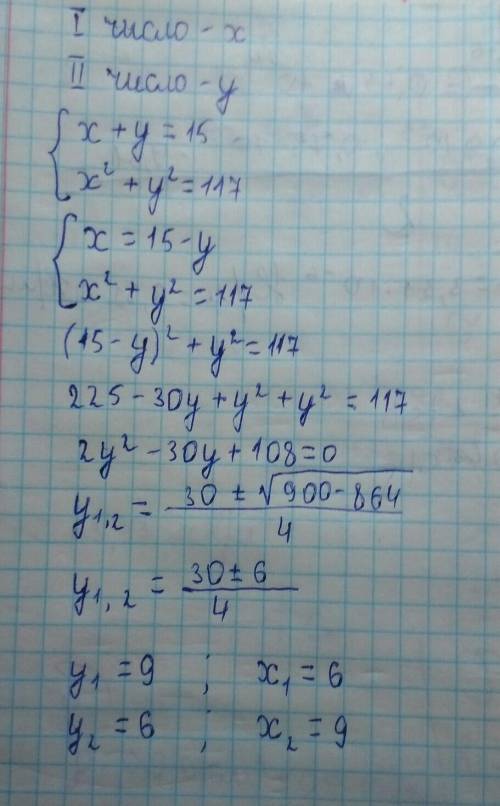 I число - x
II число - y
x + y = 15
x² + y² = 117
x = 15 - y
x² + y² = 117
(15 - y)² + y² = 117
225 - 30y + y² + y² = 117
2y² - 30y + 108 = 0
y₁,₂ = (30 ± √(900 - 864)) / 4
y₁,₂ = (30 ± 6) / 4
y₁ = 9 ; x₁ = 6
y₂ = 6 ; x₂ = 9